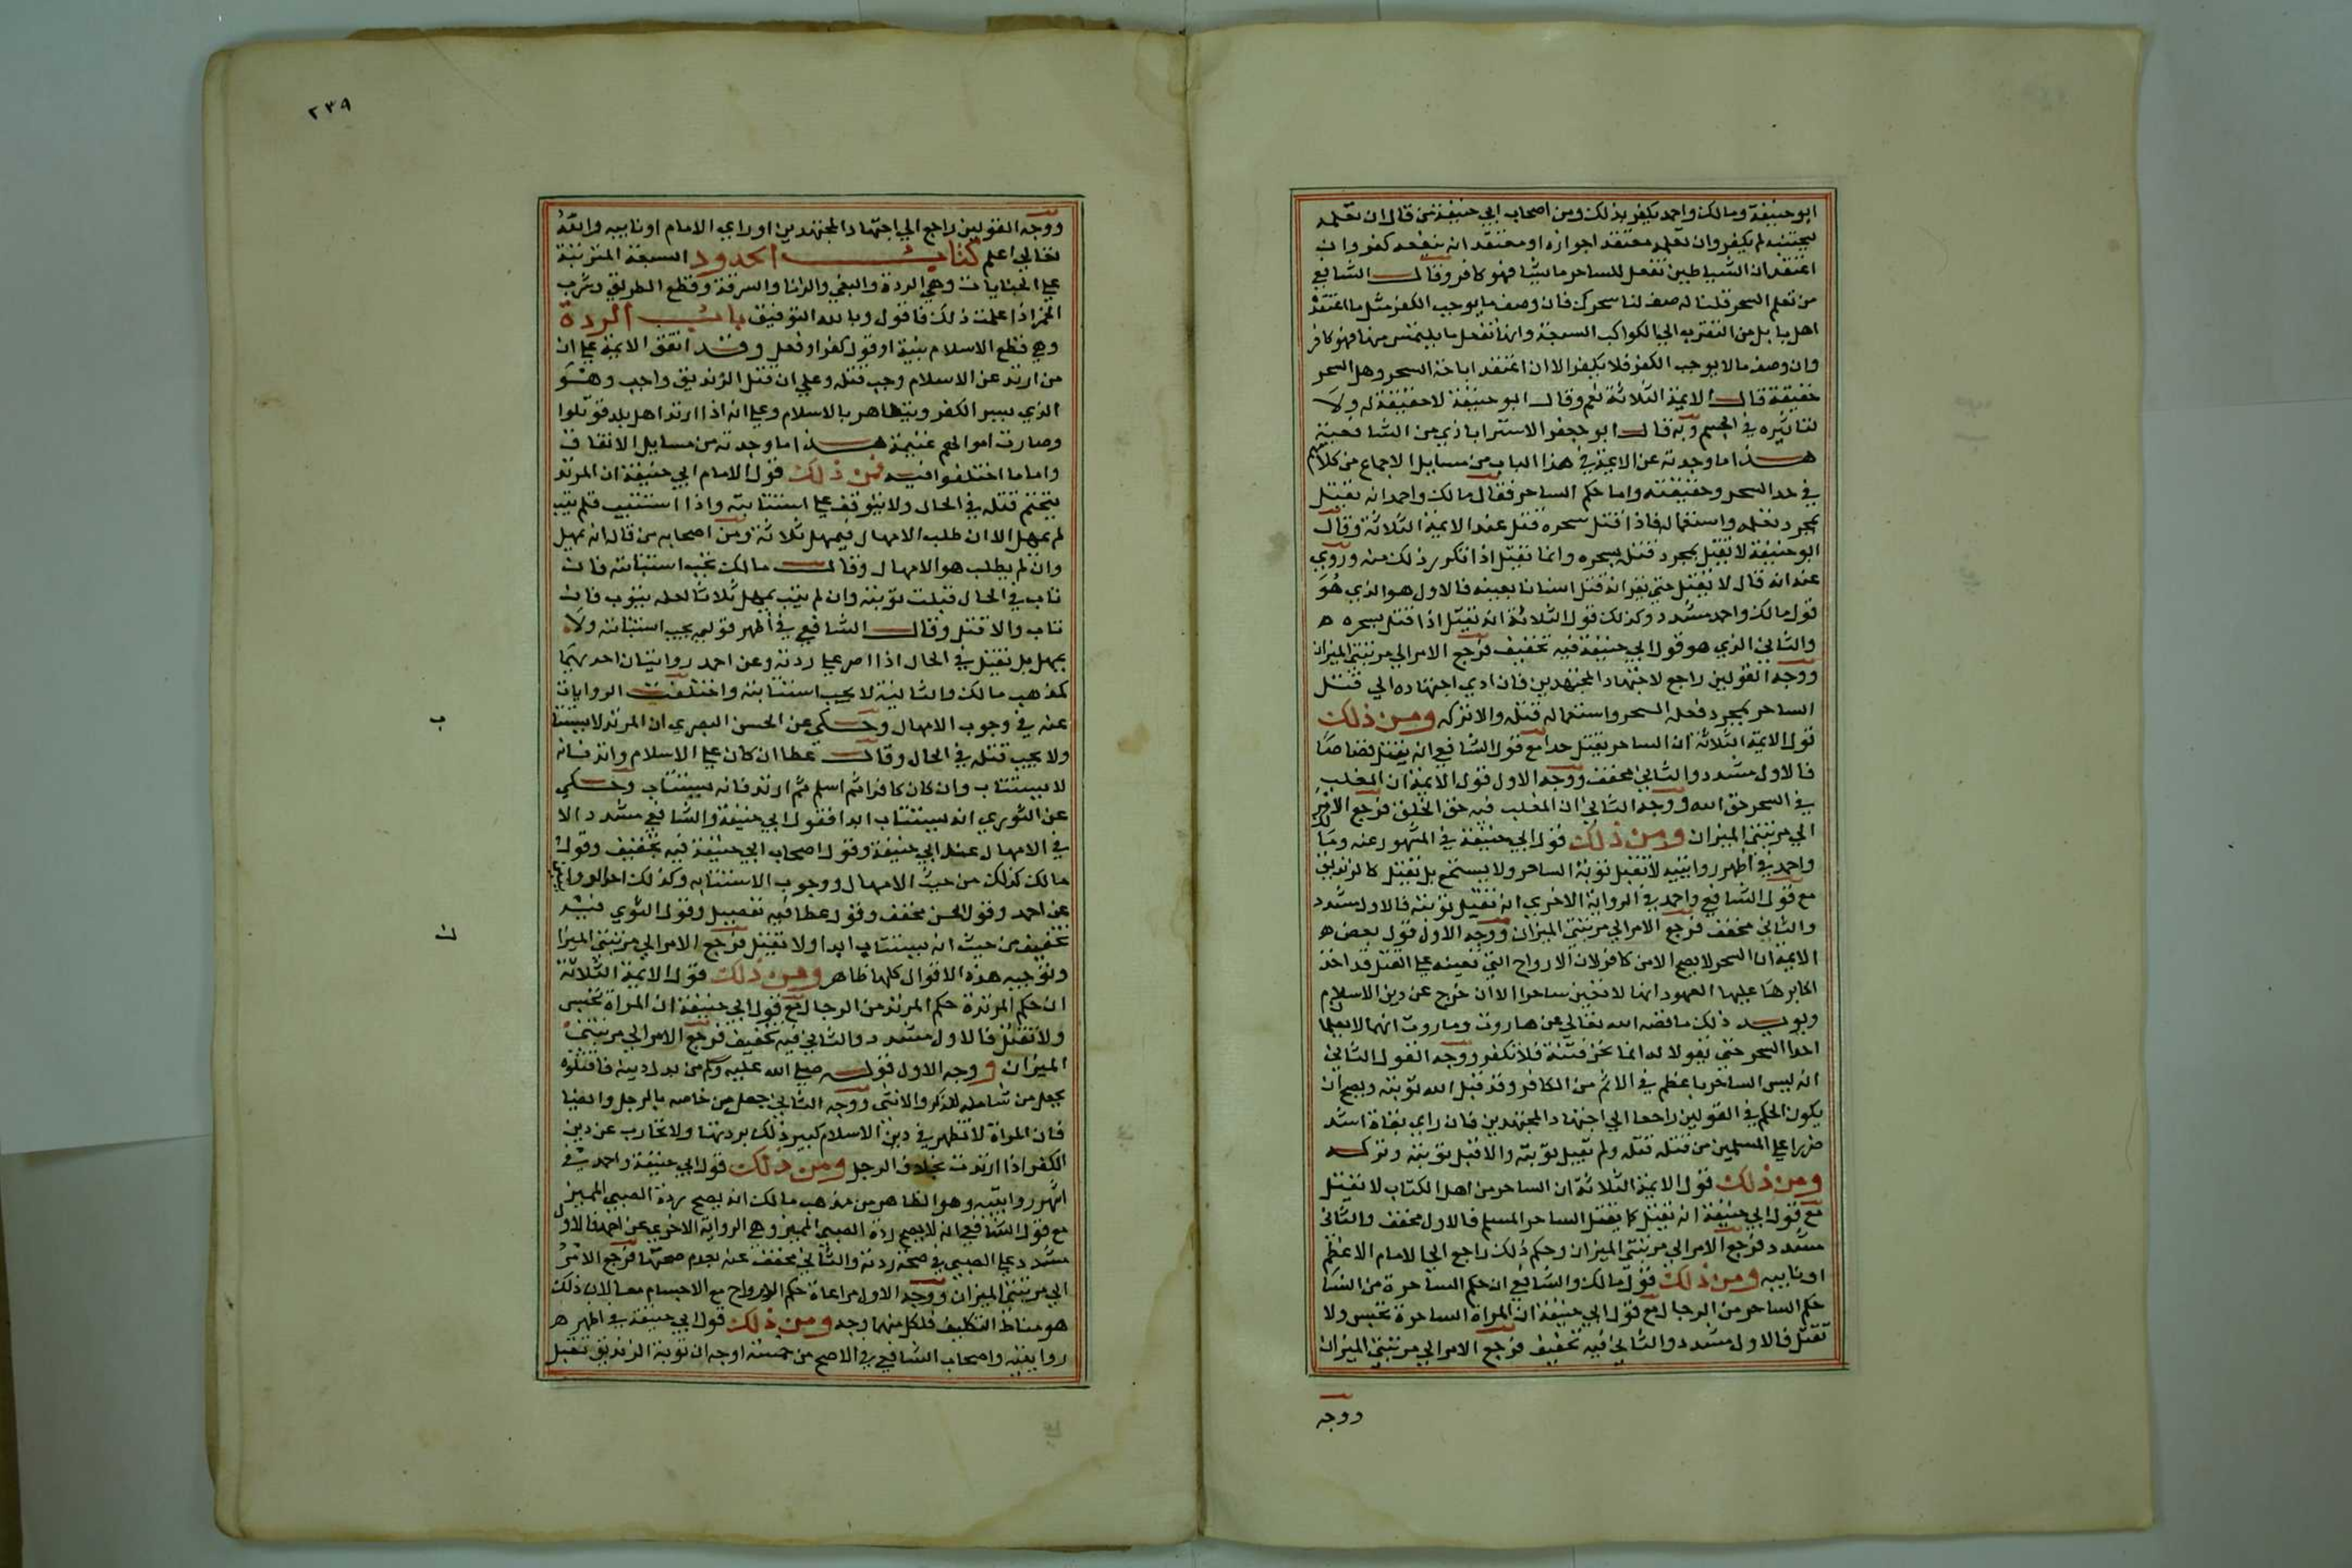 ابو حنيفة ومالك واحمد يكفر بذلك ومن اصحاب ابي حنيفة من قال ان تعلمه
ليجتنبه لم يكفر وان تعلمه معتقدا جوازه او معتقدا انه ينفعه كفر وان
اعتقد ان الشياطين تفعل للساحر ما يشا فهو كافر وقال الشافعي
من تعلم السحر قلنا له صف لنا سحرك فان وصف ما يوجب الكفر مثل ما اعتقده
اهل بابل من التقرب الي الكواكب السبعة وانها تفعل ما يلتمس منها فهو كافر
وان وصف ما لا يوجب الكفر فلا يكفر الا ان اعتقد اباحة السحر وهل السحر
حقيقة قال الايمة الثلاثة نعم وقال ابو حنيفة لا حقيقة له ولا
تاثيره في الجسم وبه قال ابو جعفر الاستراباذي من الشافعية
هذا ما وجدته عن الايمة في هذا الباب من مسايل الاجماع من كلامهم
في حد السحر وحقيقته واما حكم الساحر فقال مالك واحمد انه يقتل
بمجرد تعلمه واستعماله فاذا قتل سحره قتل عند الايمة الثلاثة وقال
ابو حنيفة لا يقتل بمجرد قتله بسحره وانما يقتل اذا تكرر ذلك منه وروي
عنه انه قال لا يقتل حتي يقر انه قتل انسانا بعينه فالاول هو الذي هو
قول مالك واحمد مشدد وكذلك قول الثلاثة انه يقتل اذا قتل بسحره ه
والثاني الذي هو قول ابي حنيفة فيه تخفيف فرجع الامر الي مرتبتي الميزان
ووجه القولين راجع لاجتهاد المجتهدين فان ادي اجتهاده الي قتل
الساحر بمجرد فعله السحر واستعماله قتله والا تركه ومن ذلك
قول الايمة الثلاثة ان الساحر يقتل حدا مع قول الشافعي انه يقتل قصاصا
فالاول مشدد والثاني مخفف ووجه الاول قول الايمة ان المغلب
في السحر حق الله ووجه الثاني ان المغلب فيه حق الخلق فرجع الامر
الي مرتبتي الميزان ومن ذلك قول ابي حنيفة في المشهور عنه ومالك
واحمد في اظهر روايتيه لا تقبل توبة الساحر ولا يستمع بل يقتل كالزنديق
مع قول الشافعي واحمد في الرواية الاخري انه تقبل توبته فالاول مشدد
والثاني مخفف فرجع الامر الي مرتبتي الميزان ووجه الاول قول بعض ه
الايمة ان السحر لا يصح الا من كافر لان الارواح التي تعينه علي القتل قد اخذ
اكابرها عليها العهود انها لا تعين ساحرا الا ان خرج عن دين الاسلام
ويويد ذلك ما قصه الله تعالي عن هاروت وماروت انهما لا يعلما
احدا السحر حتي يقولا له انما نحن فتنة فلا تكفر ووجه القول الثاني
انه ليس الساحر باعظم في الاثم من الكافر وقد قبل الله توبته ويصح ان
يكون الحكم في القولين راجعا الي اجتهاد المجتهدين فان راي بقاه اشد
ضررا علي المسلمين من قتله قتله ولم تقبل توبته والا قبل توبته وتركه
ومن ذلك قول الايمة الثلاثة ان الساحر من اهل الكتاب لا يقتل
مع قول ابي حنيفة انه يقتل كما يقتل الساحر المسلم فالاول مخفف والثاني
مشدد فرجع الامر الي مرتبتي الميزان وحكم ذلك راجع الي الامام الاعظم
او نايبه ومن ذلك قول مالك والشافعي ان حكم الساحرة من النسا
حكم الساحر من الرجال مع قول ابي حنيفة ان المراة الساحرة تحبس ولا
تقتل فالاول مشدد والثاني فيه تخفيف فرجع الامر الي مرتبتي الميزان
ووجه
٢٣٩
ووجه القولين راجع الي اجتهاد المجتهدين او راي الامام او نايبه والله
تعالي اعلم كتاب الحدود السبعة المترتبة
علي الجنايات وهي الردة والبغي والزنا والسرقة وقطع الطريق وشرب
الخمر اذا علمت ذلك فاقول وبالله التوفيق باب الردة
وهي قطع الاسلام بنية او قول كفر او فعل وقد اتفق الايمة علي ان
من ارتد عن الاسلام وجب قتله وعلي ان قتل الزنديق واجب وهو
الذي يسر الكفر ويتظاهر بالاسلام وعلي انه اذا ارتد اهل بلد قوتلوا
وصارت اموالهم غنيمة هذا ما وجدته من مسايل الاتفاق
واما ما اختلفوا فيه فمن ذلك قول الامام ابي حنيفة ان المرتد
يتحتم قتله في الحال ولا يتوقف علي استتابته واذا استتيب فلم يتب
لم يمهل الا ان طلب الامهال فيمهل ثلاثة ومن اصحابه من قال انه يمهل
وان لم يطلب هو الامهال وقال مالك تجب استتابته فان
تاب في الحال قبلت توبته وان لم يتب يمهل ثلاثا لعله يتوب فان
تاب والا قتل وقال الشافعي في اظهر قوليه يجب استتابته ولا
يمهل بل يقتل في الحال اذا اصر علي ردته وعن احمد روايتان احديهما
كمذهب مالك والثانية لا يجب استتابته واختلفت الروايات
عنه في وجوب الامهال وحكي عن الحسن البصري ان المرتد لا يستتا
ب
ولا يجب قتله في الحال وقال عطا ان كان علي الاسلام وارتد فانه
لا يستتاب وان كان كافرا ثم اسلم ثم ارتد فانه يستتاب وحكي
عن الثوري انه يستتاب ابدا فقول ابي حنيفة والشافعي مشدد الا
في الامهال عند ابي حنيفة وقول اصحاب ابي حنيفة فيه تخفيف وقول
مالك كذلك من حيث الامهال ووجوب الاستتابه وكذلك احد الروايتين
عن احمد وقول الحسن مخفف وقول عطا فيه تفصيل وقول الثوري فيه
تخفيف من حيث انه يستتاب ابدا ولا يقتل فرجع الامر الي مرتبتي الميزا
ن
وتوجيه هذه الاقوال كلها ظاهر ومن ذلك قول الايمة الثلاثة
ان حكم المرتدة حكم المرتد من الرجال مع قول ابي حنيفة ان المراة تحبس
ولا تقتل فالاول مشدد والثاني فيه تخفيف فرجع الامر الي مرتبتي
الميزان ووجه الاول قوله صلي الله عليه وسلم من بدل دينه فاقتلوه
بجعل من شاملة للذكر والانثي ووجه الثاني جعل من خاصه بالرجل والفتيا
فان المراة لا تظهر في دين الاسلام كبير ذلك بردتها ولا تحارب عن دين
الكفر اذا ارتدت بخلاف الرجل ومن ذلك قول ابي حنيفة واحمد في
اشهر روايتيه وهو الظاهر من مذهب مالك انه يصح ردة الصبي المميز
مع قول الشافعي انه لا يصح ردة الصبي المميز وهي الرواية الاخري عن احمد فالاول
مشدد علي الصبي في صحة ردته والثاني مخفف عنه بعدم صحتها فرجع الامر
الي مرتبتي الميزان ووجه الاول مراعاة حكم الارواح مع الاجسام معا لان ذلك
هو مناط التكليف فلكل منهما وجه ومن ذلك قول ابي حنيفة في اظهر ه
روايتيه واصحاب الشافعي في الاصح من خمسة اوجه ان توبة الزنديق تقبل